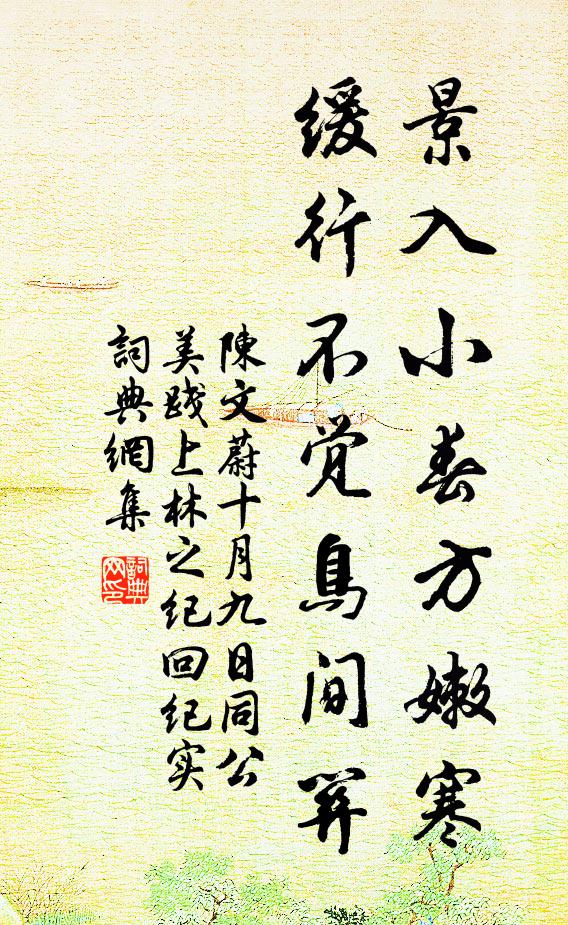 景入小春方嫩寒
缓行不觉鸟间关
陳文蔚十月九日同公
美践上林之纪回纪实
詞典網集
詞典网印